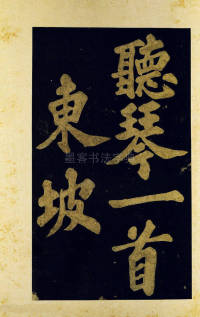 聽琴一首
東坡
墨客书法字典